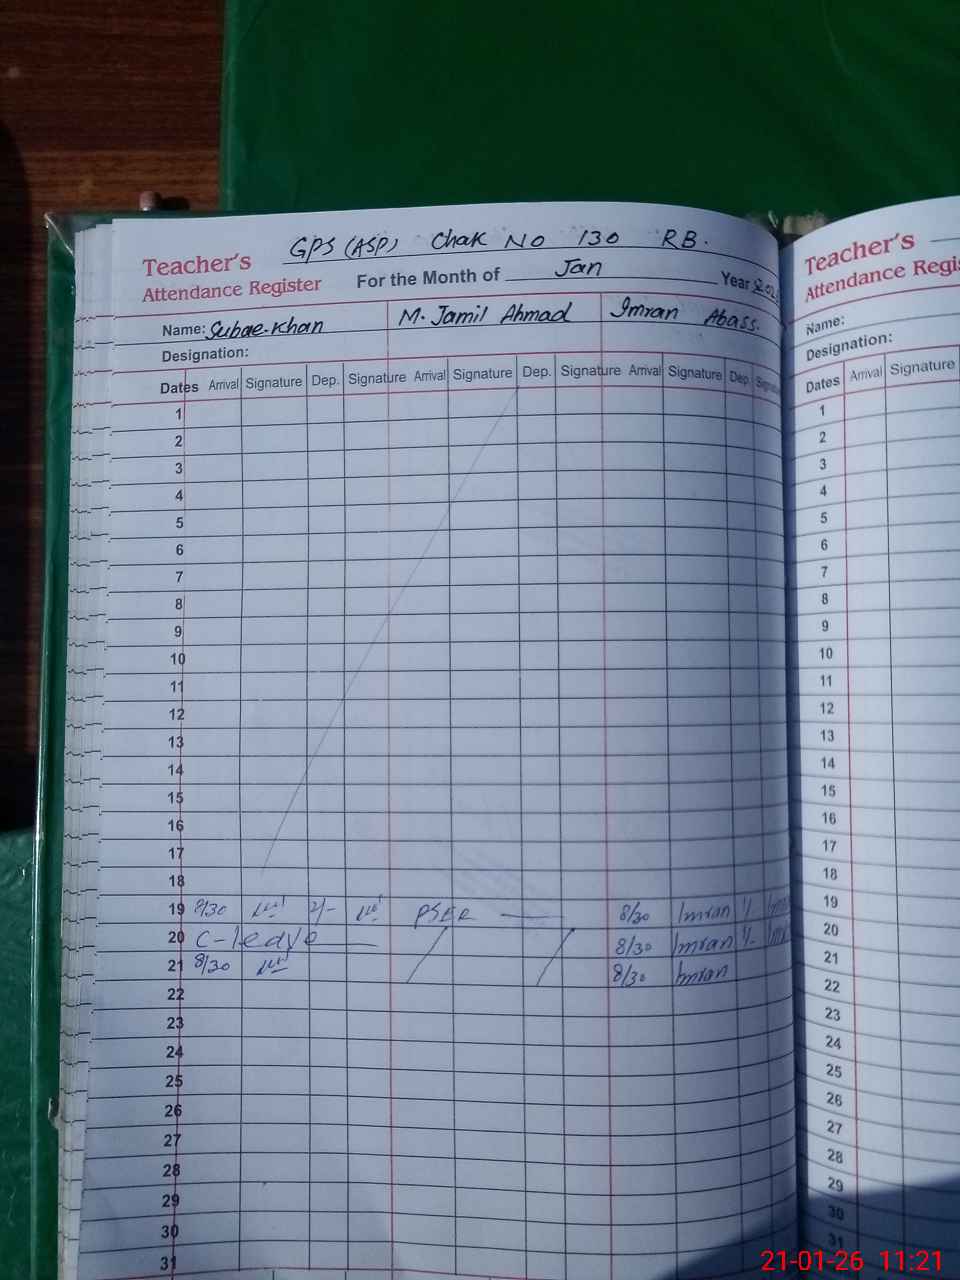 GPS (ASP) Chak No 130 RB.
Teacher's
Attendance Register For the Month of Jan Year
Name: Subae-Khan M. Jamil Ahmad Imran Abass.
Designation:
Dates Arrival Signature Dep. Signature Arrival Signature Dep. Signature Arrival Signature Dep.
1
2
3
4
5
6
7
8
9
10
11
12
13
14
15
16
17
18
19 8/30 PSER 8/30 Imran
20 C-leave 8/30 Imran
21 8/30 8/30 Imran
22
23
24
25
26
27
28
29
30
31
Teacher's
Attendance
Name:
Designation:
Dates Arrival Signature
1
2
3
4
5
6
7
8
9
10
11
12
13
14
15
16
17
18
19
20
21
22
23
24
25
26
27
28
29
30
31
21-01-26 11:21